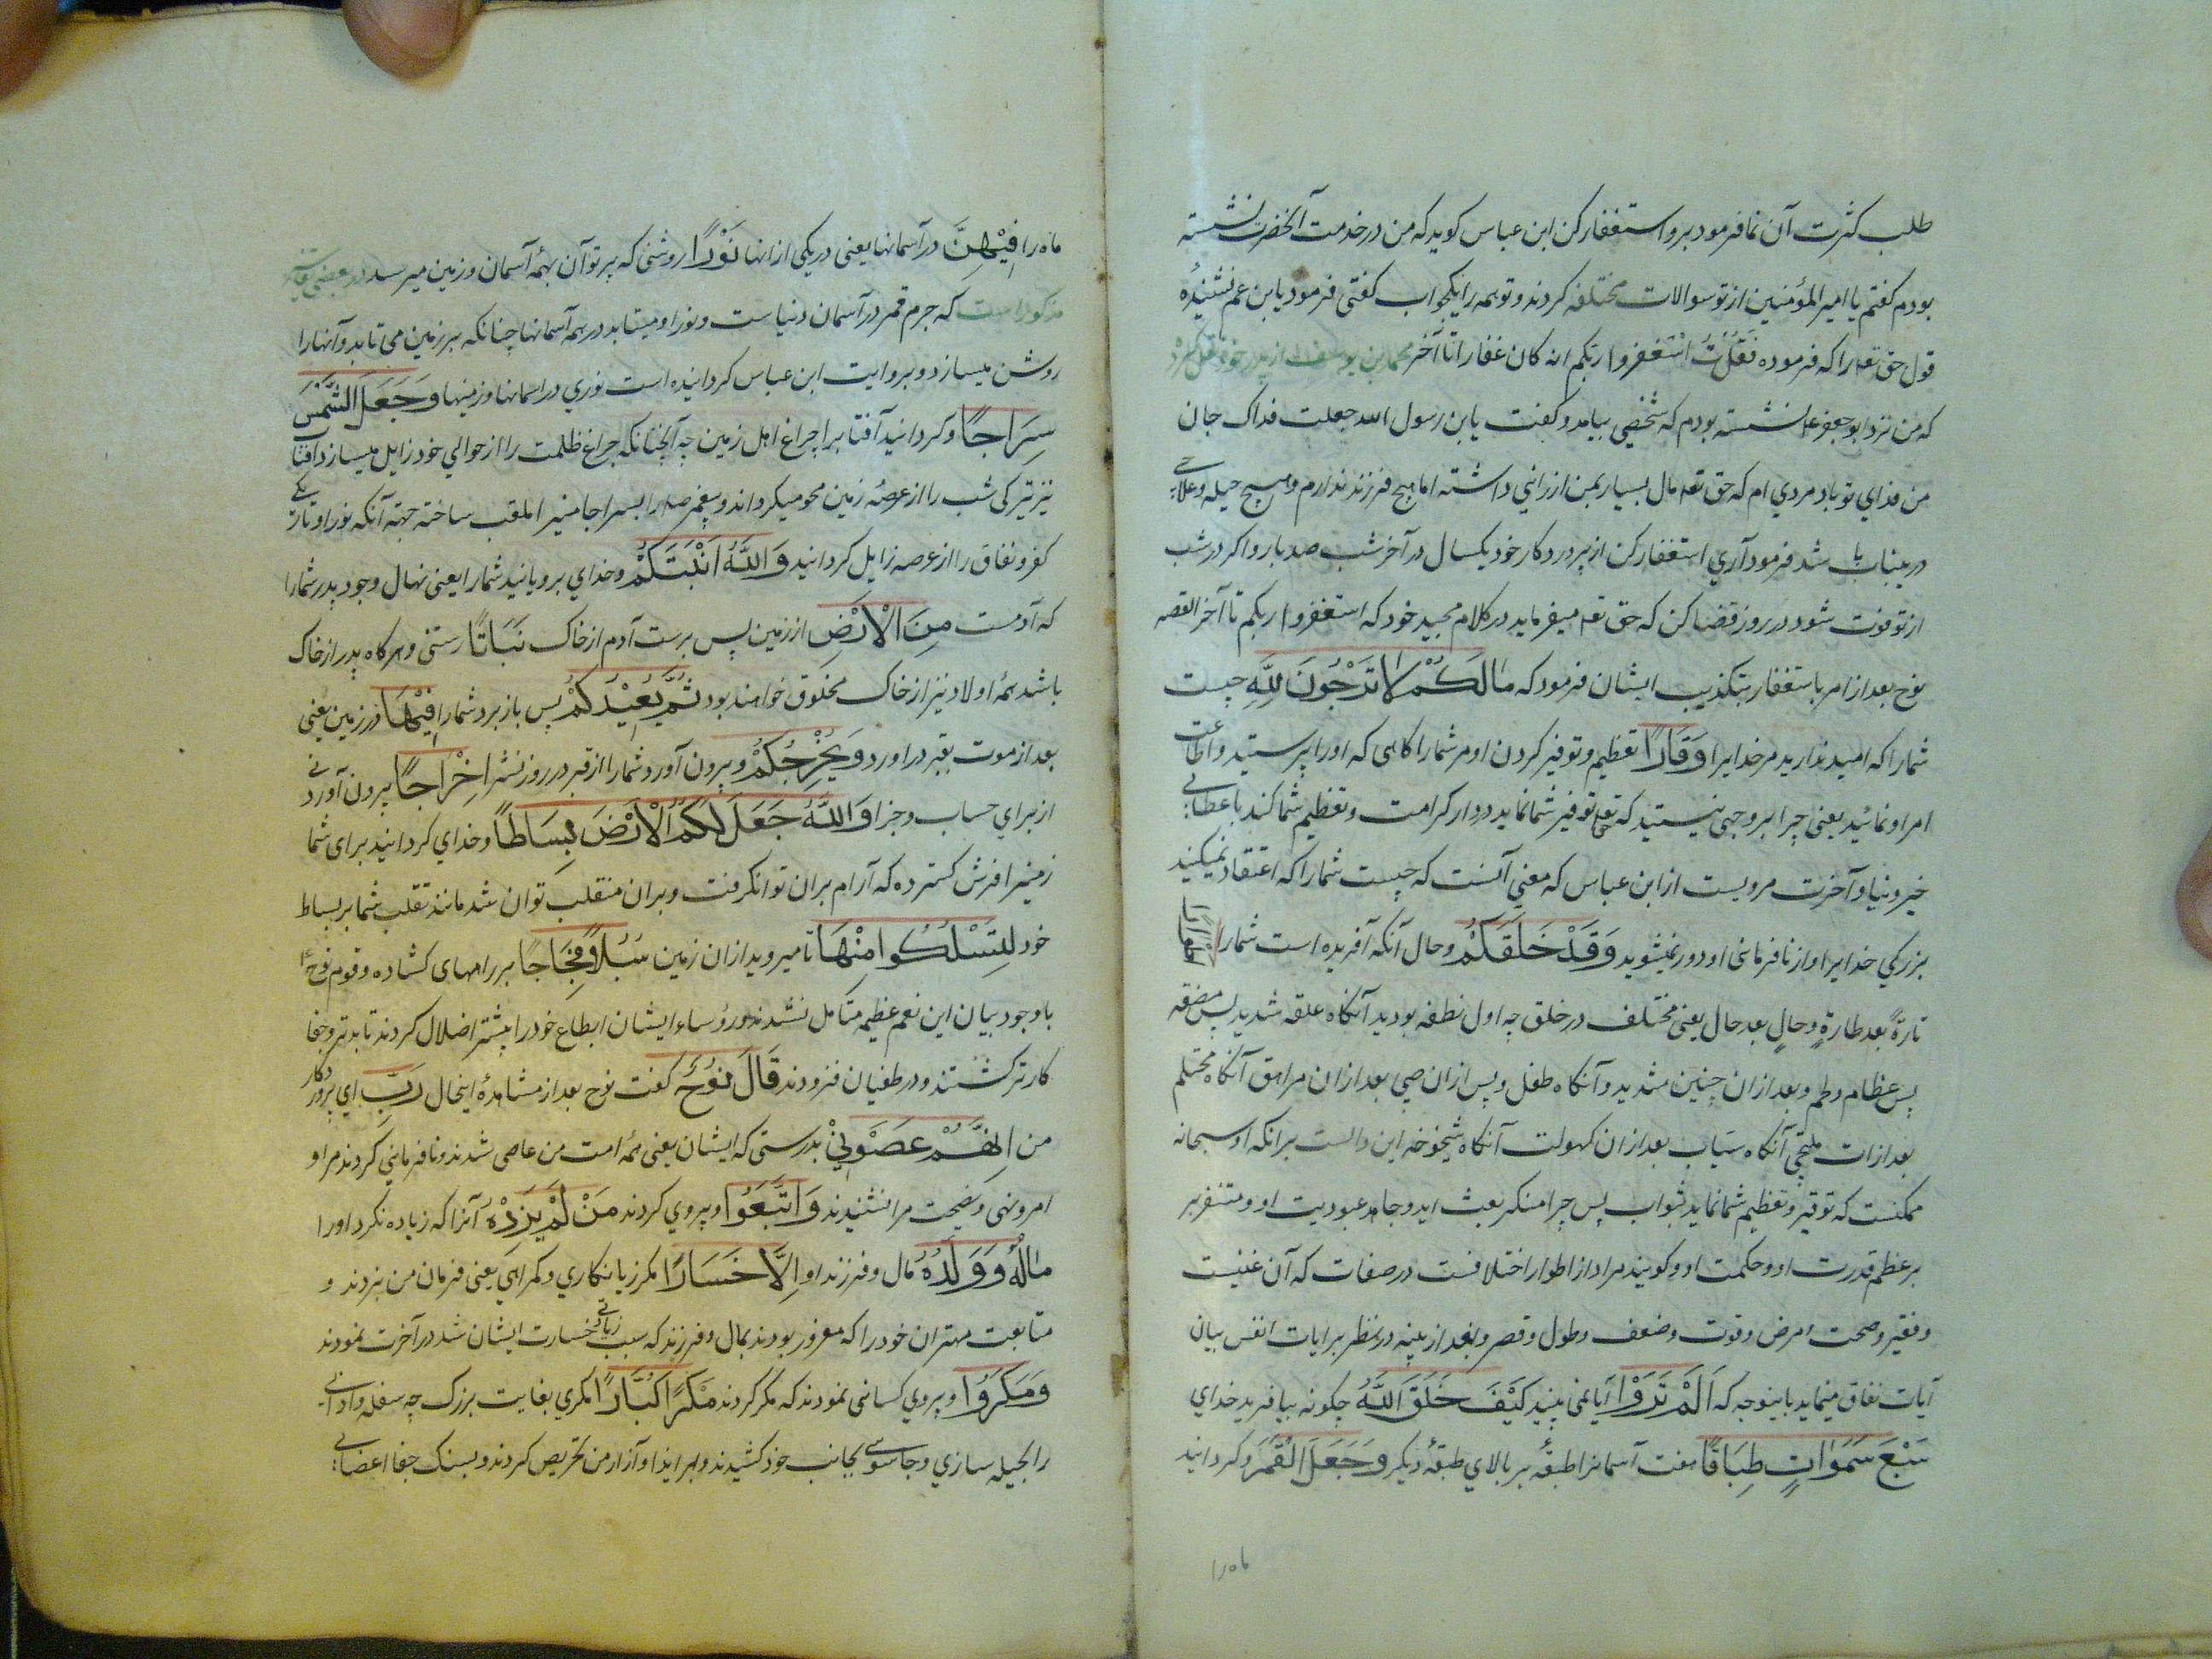 طلب کثرت آن نما فرمود برو استغفار کن ابن عباس کوید که من در خدمت آنحضرت نشسته
بودم کفتم یا امیر المؤمنین از تو سوالات مختلفه کردند و تو همه را یکجواب کفتی فرمود یابن عم نشنیدهٔ
قول حق تعه را که فرموده فَقُلْتُ اسْتَغفروا ربکم انه کان غفارا تا آخر محمد بن یوسف از پدر خود نقل کرد
که من نزد ابو جعفر ع نشسته بودم که شخصی بیامد و کفت یابن رسول الله جعلت فداک جان
من فدای تو باد مردی ام که حق تعه مال بسیار بمن ارزانی داشته اما هیچ فرزند ندارم و هیچ حیله و علاجی
درینباب باشد فرمود آری استغفار کن از پروردکار خود یکسال در آخر شب صد بار و اکر در شب
از تو فوت شود در روز قضا کن که حق تعه میفرماید در کلام مجید خود که استغفروا ربکم تا آخر القصه
نوح بعد از امر باستغفار بتکذیب ایشان فرمود که مَا لَكُمْ لَا تَرْجُونَ لِلَّهِ چیست
شما را که امید ندارید مر خدایرا وَقَارًا تعظیم و توقیر کردن او مر شما را کاهی که او را پرستید و اطاعت
امر او نمائید یعنی چرا بر وجهی نیستید که تعه توقیر شما نماید در دار کرامت و تعظیم شما کند باعطای
خیر دنیا و آخرت مرویست از ابن عباس که معنی آنست که چیست شما را که اعتقاد نمیکنید
بزرکی خدایرا و از نافرمانی او دور نمیشوید وَقَدْ خَلَقَكُمْ وحال آنکه آفریده است شما را اَطْوَارًا
تارةً بعد طارةٍ وحالٍ بعد حال یعنی مختلف در خلق چه اول نطفه بودید آنکاه علقه شدید پس مضغه
پس عظام و لحم و بعد از ان چنین شدید و آنکاه طفل و پس ازان صبی بعد ازان مراهق آنکاه محتلم
بعد ازات ملتحی آنکاه شباب بعد ازان کهولت آنکاه شیخوخه این دالست برانکه او سبحانه
ممکنست که توقیر و تعظیم شما نماید بثواب پس چرا منکر بعث اید و جاحد عبودیت او و متنفر بر
بر عظم قدرت او و حکمت او و کویند مراد از اطوار اختلافست در صفات که آن غنیست
و فقیر و صحت امرض و قوت و ضعف و طول و قصر و بعد از تنبیه در نظر برایات انفس بیان
آیات نفاق مینماید باینوجه که اَلَمْ تَرَوْا آیا نمی بینید كَيْفَ خَلَقَ اللَّهُ چکونه بیافرید خدای
سَبْعَ سَمٰوَاتٍ طِبَاقًا هفت آسمانرا طبقهٔ بر بالای طبقهٔ دیکر وَجَعَلَ الْقَمَرَ و کردانید
ماه را
ماه را فِيْهِنَّ در آسمانها یعنی در یکی از انها نُوْرًا روشنی که پرتو آن بهمهٔ آسمان و زمین میرسد در بعضی تفاسیر
مذکور است که جرم قمر در آسمان دنیاست و نور او میتابد در همه آسمانها چنانکه بر زمین می تابد و آنها را
روشن میسازد و بروایت ابن عباس کردانیده است نوری در اسمانها و زمینها وَجَعَلَ الشَّمْسَ
سِرَاجًا و کردانید آفتابرا چراغ اهل زمین چه آنچنانکه چراغ ظلمت را از حوالی خود زایل میسازد افتاب
نیز تیرکی شب را از عرصهٔ زمین محو میکرداند و پیغمبر ص را بسراجا منیرا ملقب ساخته جهة آنکه نور او تاریکی
کفر و نفاق را از عرصه زایل کردانید وَاللَّهُ اَنْبَتَكُمْ و خدای برویانید شما را یعنی نهال وجود پدر شما را
که آدمست مِنَ الْاَرْضِ از زمین پس برست آدم از خاک نَبَاتًا رستنی و هرکاه پدر از خاک
باشد همهٔ اولاد نیز از خاک مخلوق خواهند بود ثُمَّ يُعِيْدُكُمْ پس باز برد شما را فِيْهَا در زمین یعنی
بعد از موت بقبر در اورد وَيُخْرِجُكُمْ و بیرون آورد شما را از قبر در روز نشر اِخْرَاجًا بیرون آوردنی
از برای حساب و جزا وَاللَّهُ جَعَلَ لَكُمُ الْاَرْضَ بِسَاطًا و خدای کردانید برای شما
زمینرا فرش کسترده که آرام بران توانکرفت و بران منقلب توان شد مانند تقلب شما بر بساط
خود لِتَسْلُكُوا مِنْهَا تا میروید ازان زمین سُبُلًا فِجَاجًا بر راههای کشاده و قوم نوح ع
با وجود بیان این نعم عظیمه متکامل نشدند و رؤساء ایشان اتباع خود را بیشتر اضلال کردند تا بدتر و جفا
کارتر کشتند و در طغیان فزودند قَالَ نُوْحٌ کفت نوح بعد از مشاهدهٔ اینحال رَبِّ ای پروردکار
من اِنَّهُمْ عَصَوْنِيْ بدرستی که ایشان یعنی همهٔ امت من عاصی شدند و نافرمانی کردند مرا و
امر و نهی و نصیحت مرا نشنیدند وَاتَّبَعُوْا و پیروی کردند مَنْ لَمْ يَزِدْهُ آنرا که زیاده نکرد او را
مَالُهُ وَوَلَدُهُ مال و فرزند او اِلَّا خَسَارًا مکر زیانکاری و کمراهی یعنی فرمان من نبردند و
متابعت مهتران خود را که مغرور بودند بمال و فرزند که سبب زیانی و خسارت ایشان شد در آخرت نمودند
وَمَكَرُوْا و پیروی کسانی نمودند که مکر کردند مَكْرًا كُبَّارًا مکری بغایت بزرک چه سفله و ادانی
را بحیله سازی و جاسوسی بجانب خود کشیدند و بر ایذا و آزار من تحریص کردند و بسنک جفا اعضای